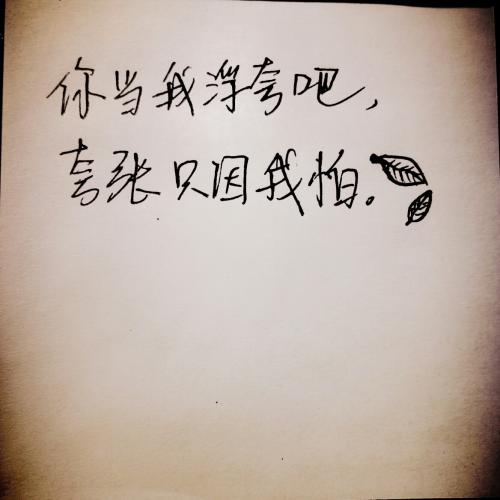 你当我浮夸吧，
夸张只因我怕。